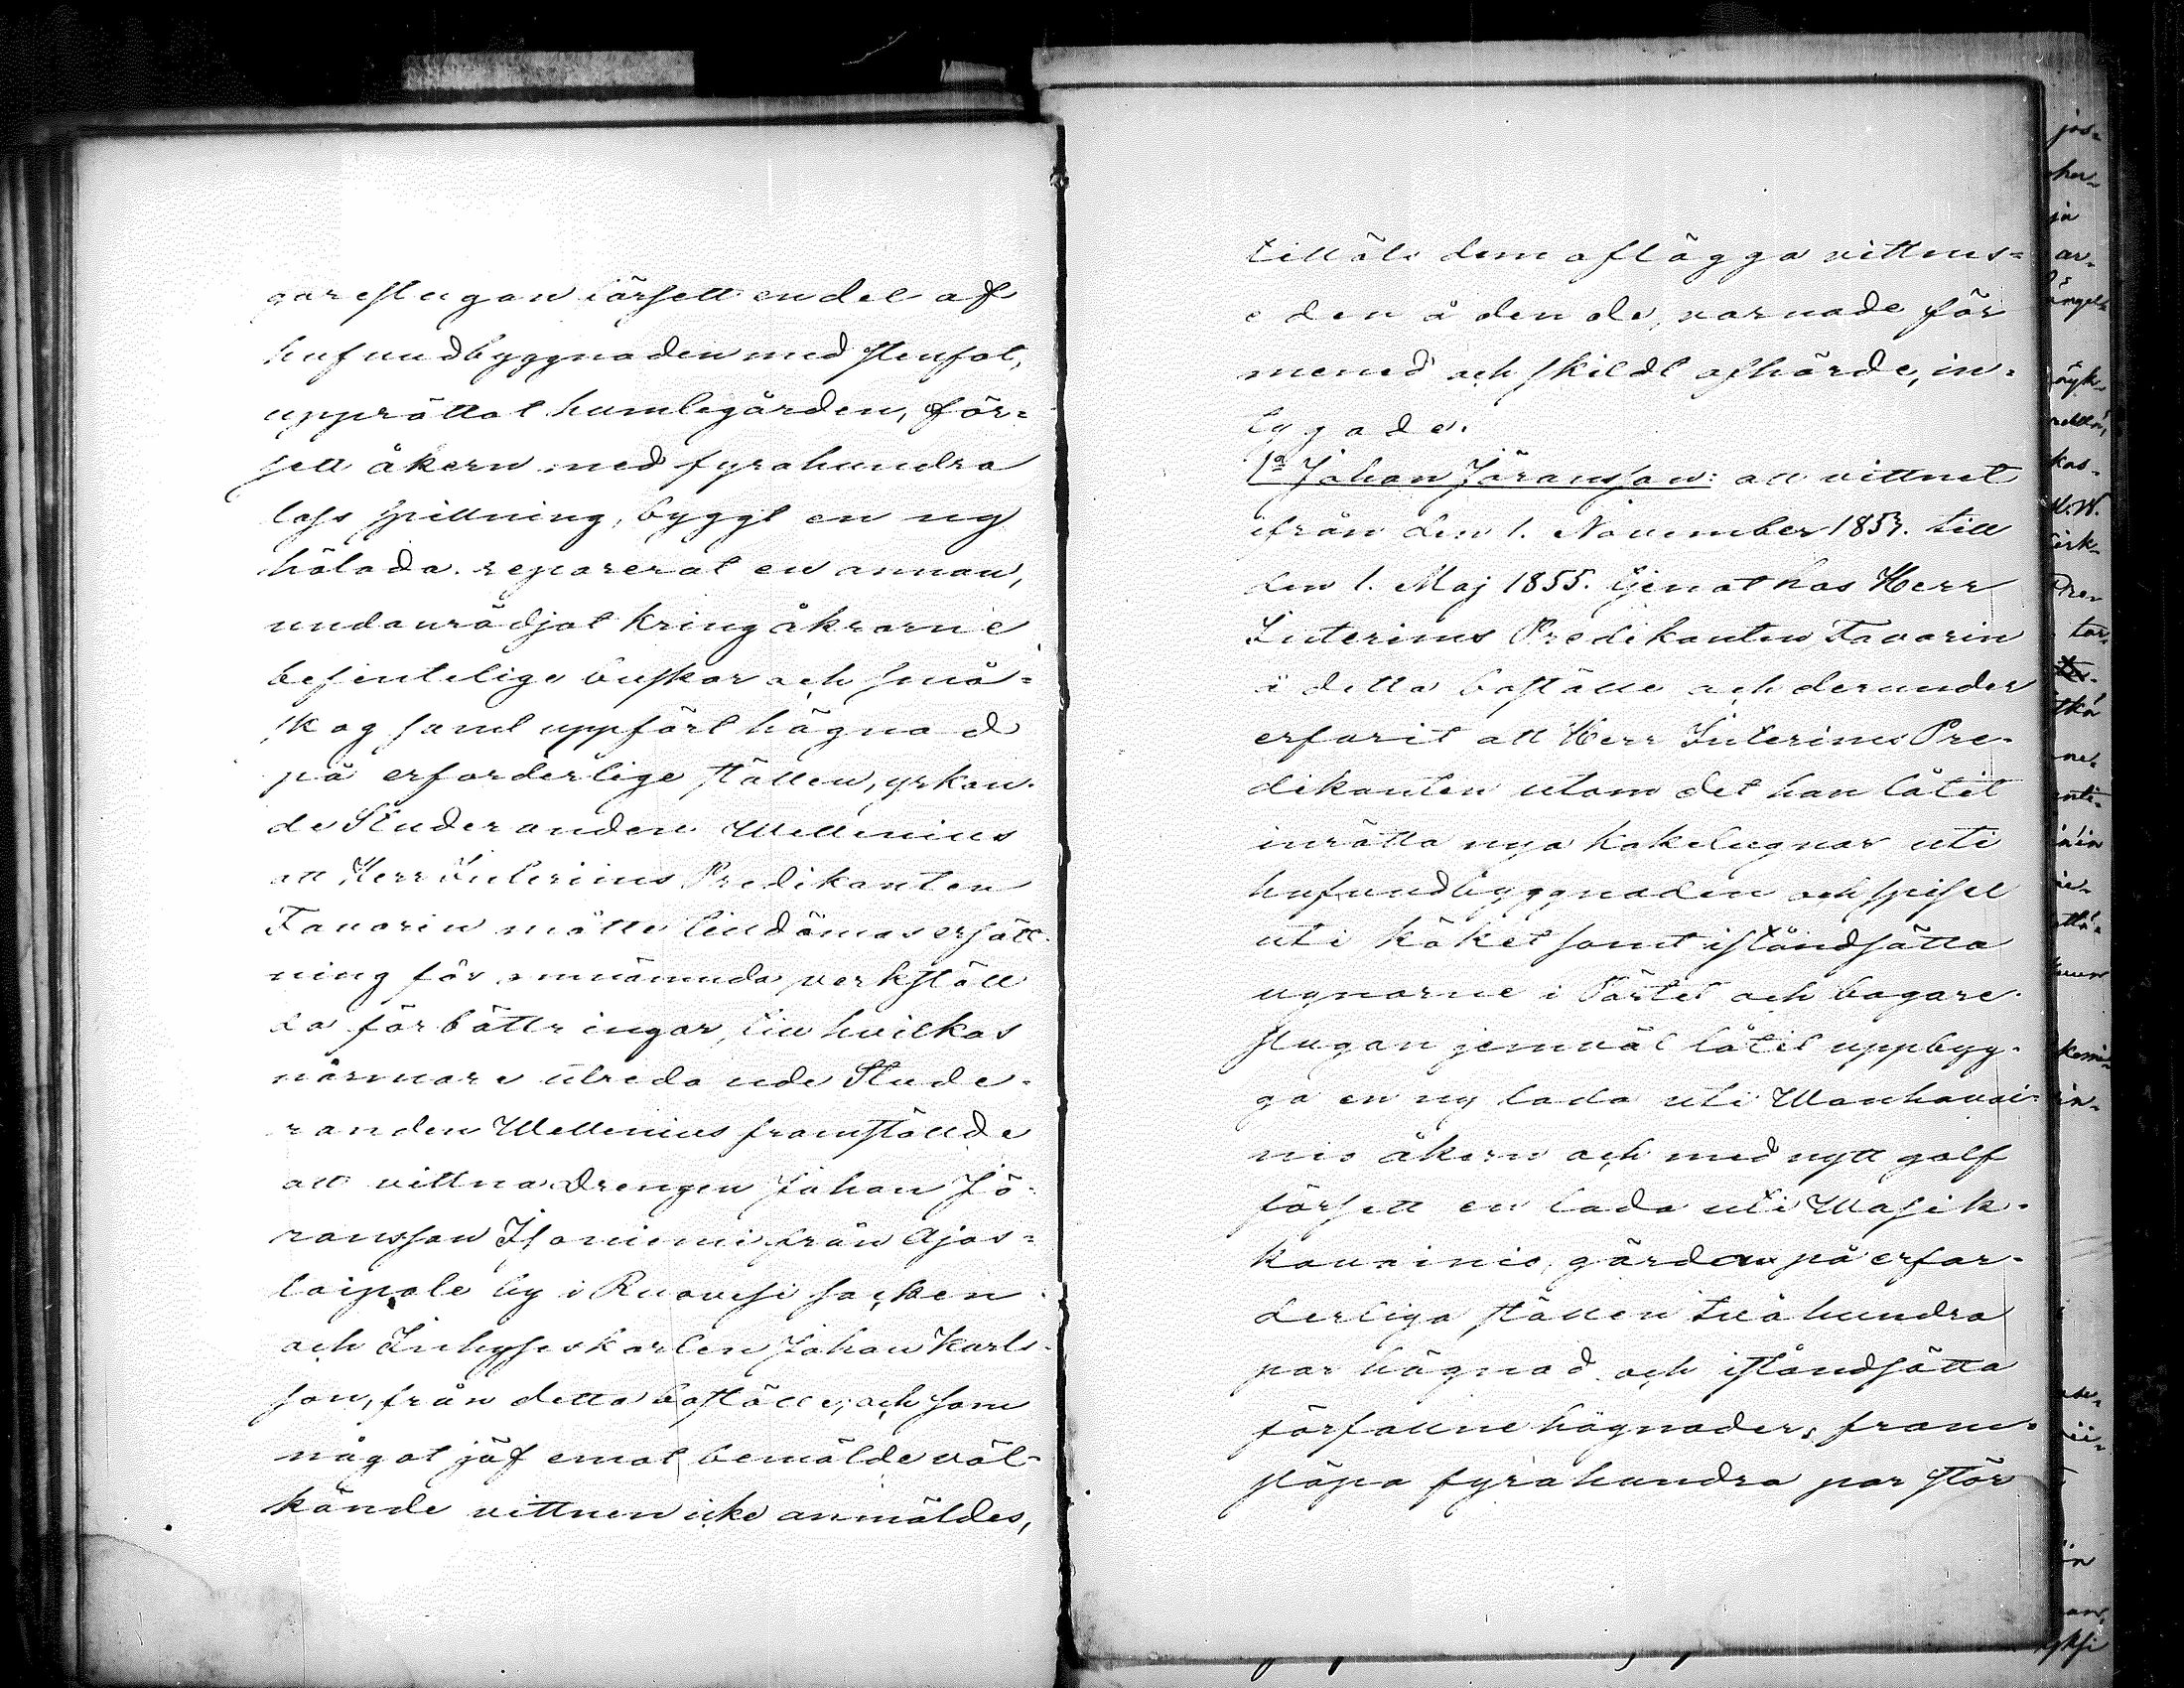 garestugan försett en del af
hufvudbyggnaden med stenfot,
upprättat humlegården, för=
sett åkern med fyrahundra
lass spillning, byggt en ny
hölada. reparerat en annan,
undanrödjat kring åkrarne
befintelige buskar och små=
skog samt uppfört hägnad
på erforderlige ställen, yrkan-
de Studeranden Wellenius
att Herr Interims Predikanten
Favorin måtte tilldömas ersätt-
ning för omnämnda verkställ
da förbättringar, till hvilkas
närmare utredande Stude-
randen Wellenius framställde
att vittna drengen Johan Jö-
ransson Isoniemi från Ajos=
laipale by i Ruovesi socken
och Inhyseskarlen Johan Karls-
son, från detta boställe; och som
något jäf emot bemälde väl-
kände vittnen icke anmäldes,
tilläts dem aflägga vittnes=
eden å den de, varnade för
mened och skildt afhörde, in-
tygade.
1a Johan Jöransson: att vittnet
ifrån den 1. November 1853. till
den 1. Maj 1855. tjenat hos Herr
Interims Predikanten Favorin
å detta boställe och derunder
erfarit att Herr Interims Pre-
dikanten utom det han låtit
inrätta nya kakelugnar uti
hufvudbyggnaden och spisel
uti köket samt iståndsätta
ugnarne i Pörtet och bagare-
stugan jemväl låtit uppbyg-
ga en ny lada uti Wanhavai-
nio åkern och med nytt golf
försett en lada uti Wasik-
kavainio, gärda på erfor-
derliga ställen tvåhundra
par hägnad och iståndsätta
förfallne hägnader, fram-
släpa fyrahundra par stör